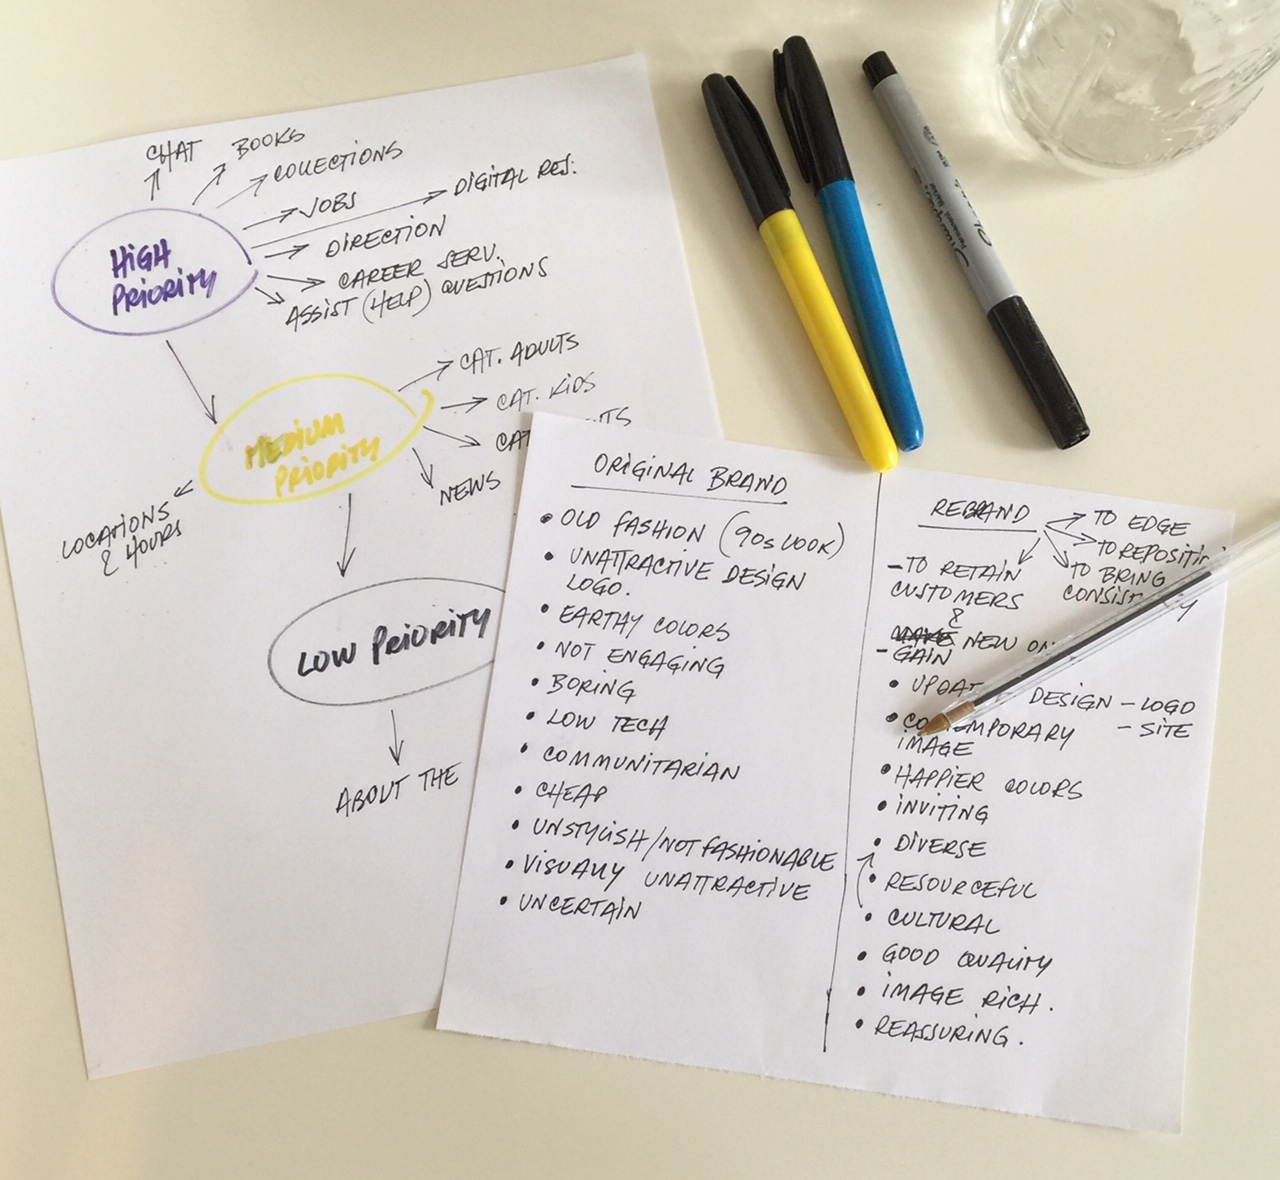 CHAT
BOOKS
COLLECTIONS
JOBS
DIGITAL RES.
DIRECTION
CAREER SERV.
ASSIST (HELP) QUESTIONS
HIGH
PRIORITY
CAT. ADULTS
CAT. KIDS
CAT
NEWS
MEDIUM
PRIORITY
LOCATIONS
& HOURS
LOW PRIORITY
ABOUT THE
ORIGINAL BRAND
• OLD FASHION (90s LOOK)
• UNATTRACTIVE DESIGN
LOGO.
• EARTHY COLORS
• NOT ENGAGING
• BORING
• LOW TECH
• COMMUNITARIAN
• CHEAP
• UNSTYLISH/NOT FASHIONABLE
• VISUALLY UNATTRACTIVE
• UNCERTAIN
REBRAND
TO EDGE
TO
TO BRING
- TO RETAIN
CUSTOMERS
&
NEW
- GAIN
• DESIGN - LOGO
- SITE
• CONTEMPORARY
IMAGE
• HAPPIER COLORS
• INVITING
• DIVERSE
• RESOURCEFUL
• CULTURAL
• GOOD QUALITY
• IMAGE RICH.
• REASSURING.
Sharpie